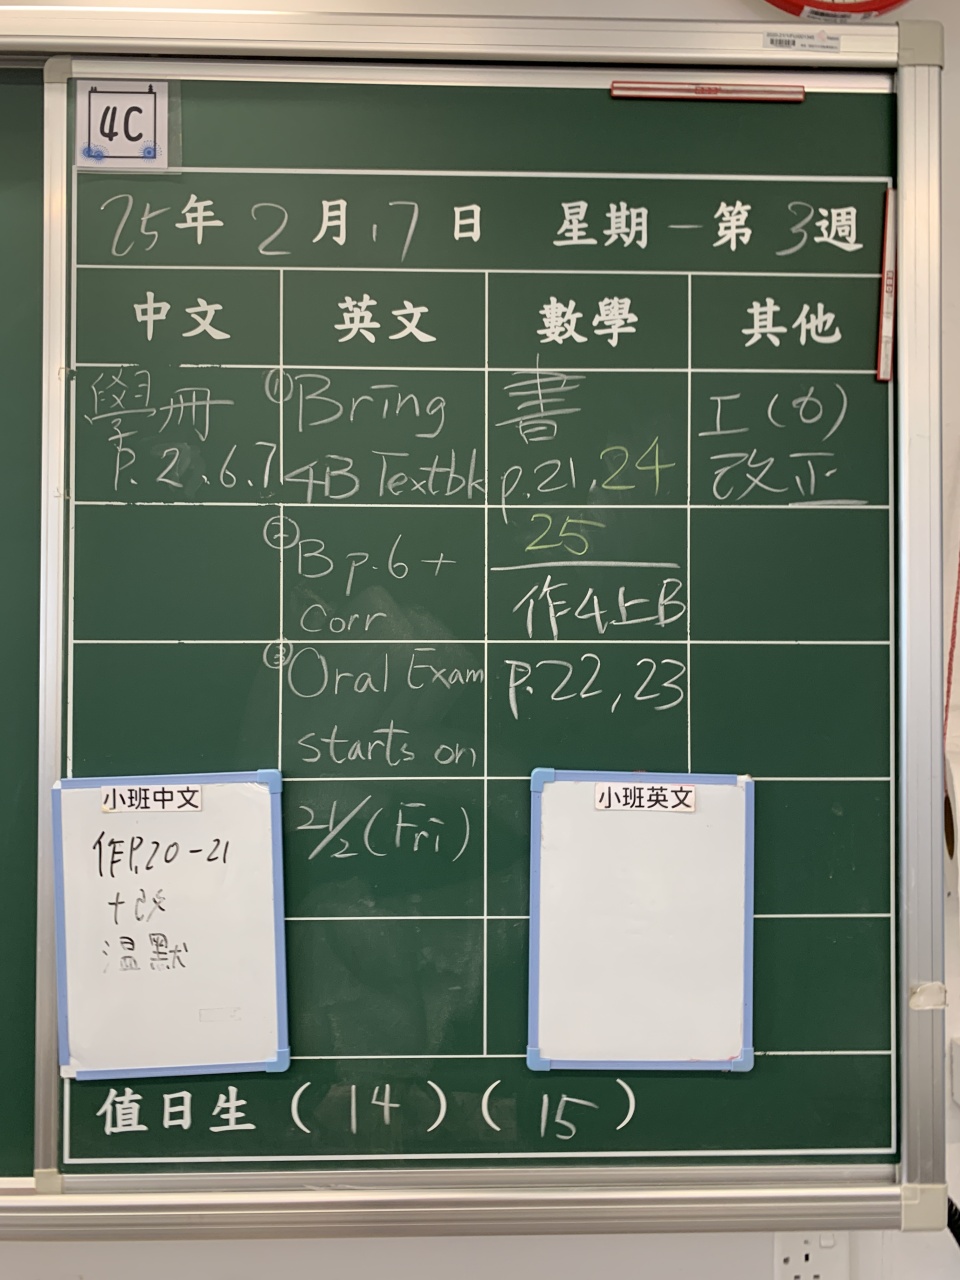 4C
25年2月17日 星期一第3週
中文 英文 數學 其他
學冊
P.2.6.7
① Bring
4B Textbk
② B p.6 +
Corr
③ Oral Exam
starts on
21/2 (Fri)
書
p.21,24
25
作4上B
P.22,23
改正
小班中文
作P.20-21
+改
溫默
小班英文
值日生 (14) (15)